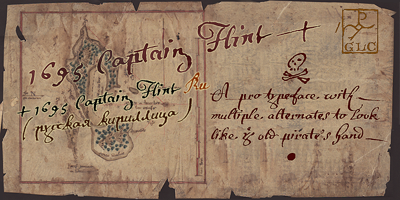 1695 Captain Flint +
GLC
+ 1695 Captain Flint Ru
(русская кириллица)
A pro typeface with
multiple alternates to look
like ye old pirate's hand